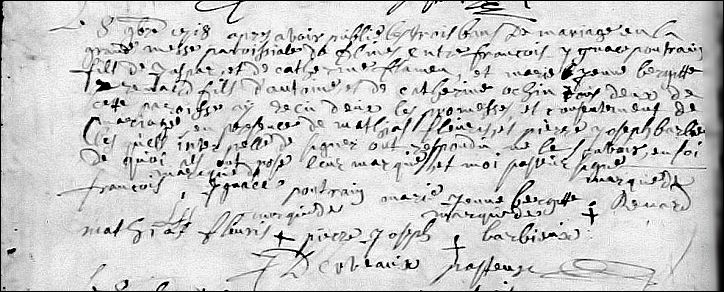 Le 8 9bre 1718 apres avoir publié les trois bans de mariage en la
grande messe paroissiale de flines entre françois ygnace pontrain
fils de jaspar et de catherine flamen, et marie jenne bergitte
renard fils d'antoine et de catherine ochin tous deux de
cette paroisse ay reçu d'eux les promesses et consentement de
mariage en presence de mathias fleuris et pierre joseph barbieux
lesquels interpellé de signer ont respondu ne le sçavoir, en foi
de quoi ils ont posé leur marque, et moi pasteur signé
marque de marque de
françois ygnace pontrain marie jenne bergitte Renard
marque de marque de
mathias fleuris pierre joseph barbieux
pasteur